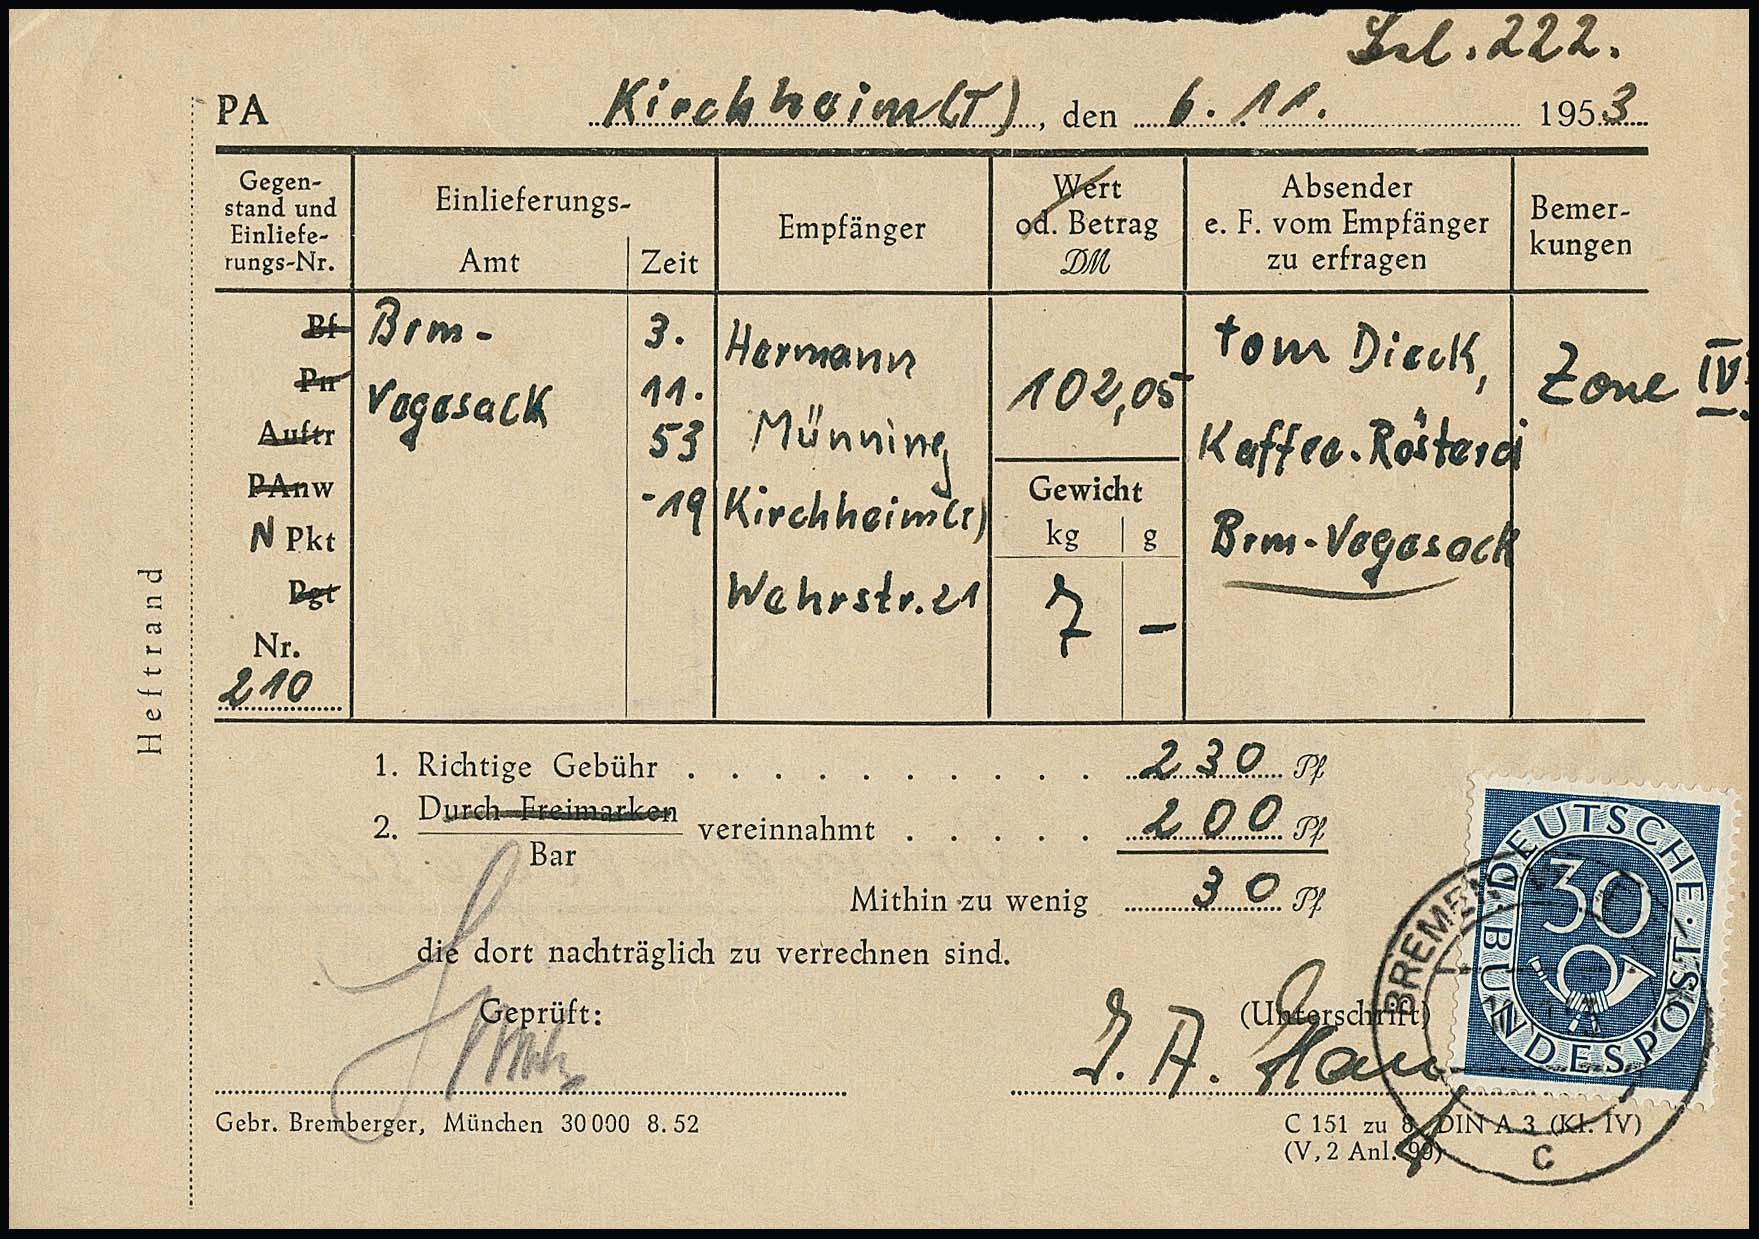 Lsl. 222.
PA Kirchheim(T), den 6. 11. 1953
Gegen-
stand und
Einliefe-
rungs-Nr.
Einlieferungs-
Amt
Zeit
Empfänger
Wert
od. Betrag
DM
Absender
e. F. vom Empfänger
zu erfragen
Bemer-
kungen
Bf
Pn
Auftr
PAnw
N Pkt
Pgt
Nr.
210
Brm-
Vegesack
3.
11.
53
-19
Hermann
Münning
Kirchheim(T)
Wehrstr. 21
102,05
Gewicht
kg g
7 –
tom Dieck,
Kaffee-Rösterei
Brm-Vegesack
Zone IV.
1. Richtige Gebühr . . . . . . . . . . 230 Pf
2. Durch Freimarken
Bar
vereinnahmt . . . . . 200 Pf
Mithin zu wenig 30 Pf
die dort nachträglich zu verrechnen sind.
Geprüft:
(Unterschrift)
I. A.
Gebr. Bremberger, München 30 000 8. 52
C 151 zu 8, DIN A 3 (Kl. IV)
(V, 2 Anl. 90)
Heftrand
DEUTSCHE · POST
BUNDESPOST
30
BREMEN
c